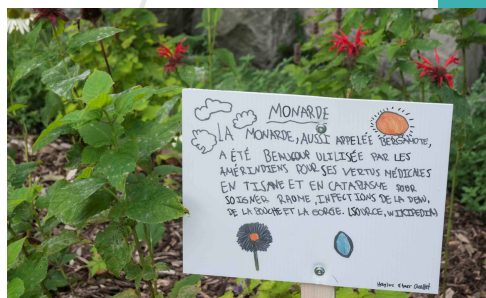 MONARDE
LA MONARDE, AUSSI APPELÉE BERGAMOTE,
A ÉTÉ BEAUCOUP UILISÉE PAR LES
AMÉRINDIENS POUR SES VERTUS MÉDICALES
EN TISANE ET EN CATAPASME POUR
SOIGNER RHUME, INFECTIONS DE LA PEAU,
DE LA BOUCHE ET LA GORGE. (SOURCE, WIKIPEDIA)